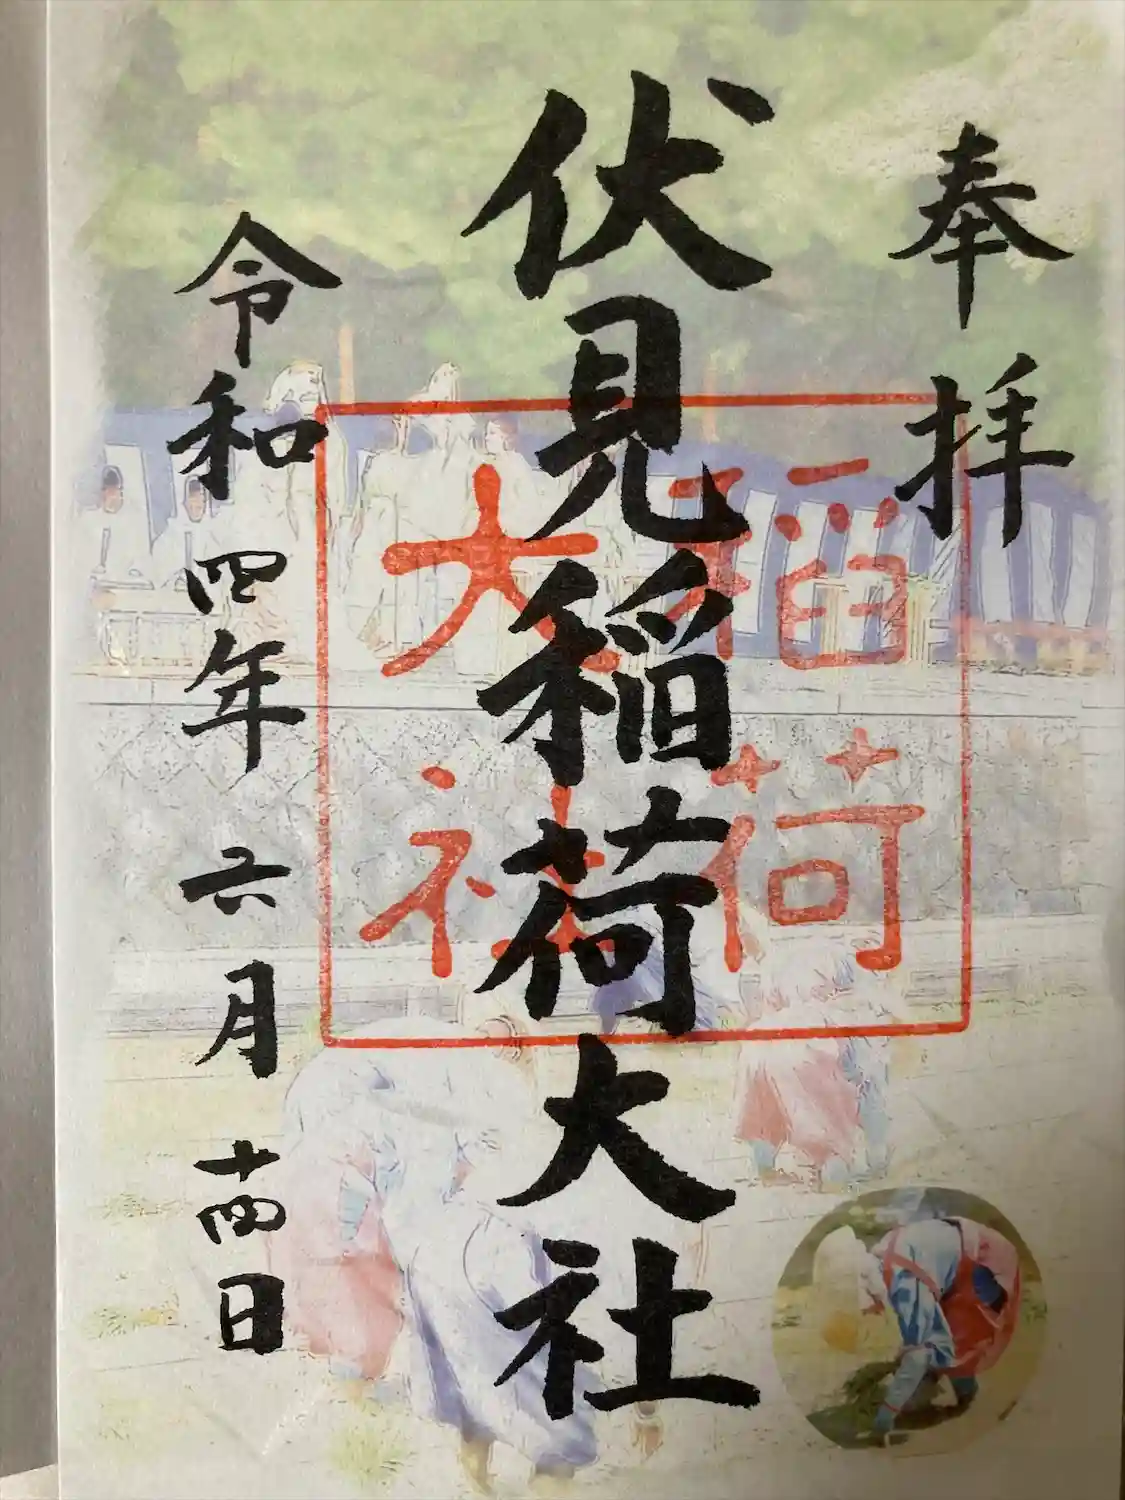 奉拝
伏見稲荷大社
稲荷
大社
令和四年六月十四日